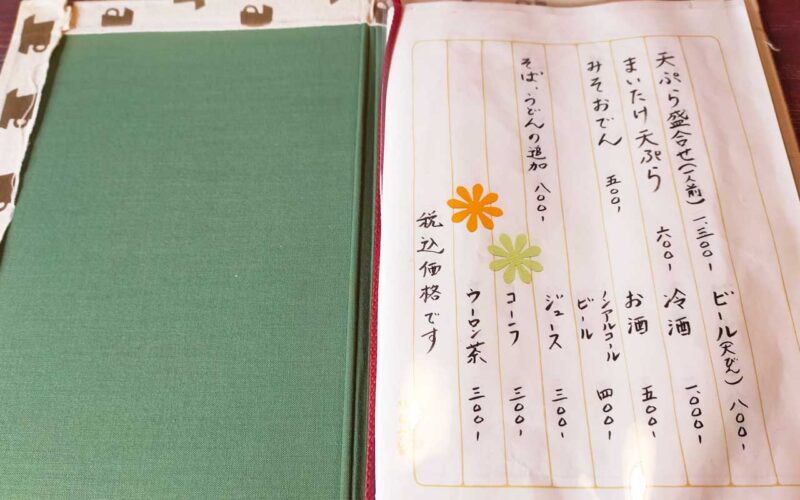 天ぷら盛合せ(一人前) 一、三〇〇-
まいたけ天ぷら 六〇〇-
みそおでん 五〇〇-
そば、うどんの追加 八〇〇-
ビール(大びん) 八〇〇-
冷酒 一、〇〇〇-
お酒 五〇〇-
ノンアルコール
ビール 四〇〇-
ジュース 三〇〇-
コーラ 三〇〇-
ウーロン茶 三〇〇-
税込価格です